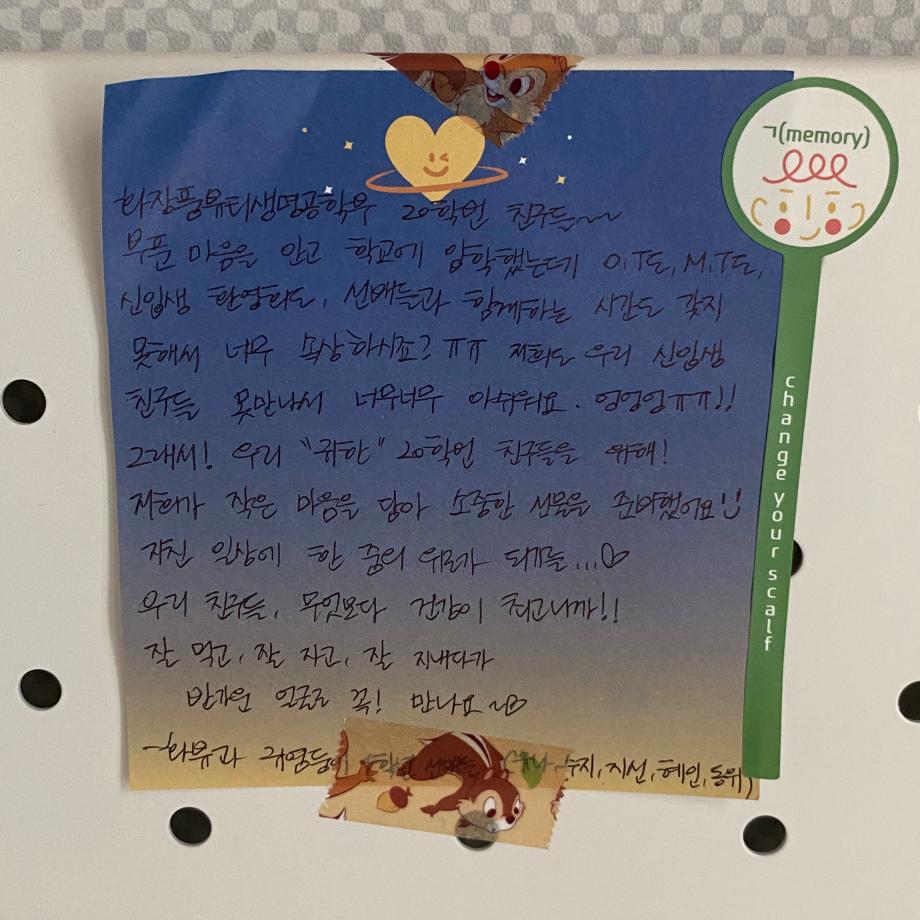 화장품뷰티생명공학부 20학번 친구들~~
부푼 마음을 안고 학교에 입학했는데 O.T도, M.T도,
신입생 환영회도, 선배들과 함께하는 시간도 갖지
못해서 너무 속상하시죠? ㅠㅠ 저희도 우리 신입생
친구들 못만나서 너무너무 아쉬워요. 엉엉엉ㅠㅠ!!
그래서! 우리 "귀한" 20학번 친구들을 위해!
저희가 작은 마음을 담아 소중한 선물을 준비했어요
지친 일상에 한 줌의 위로가 되기를...♡
우리 친구들, 무엇보다 건강이 최고니까!!
잘 먹고, 잘 자고, 잘 지내다가
반가운 얼굴로 꼭! 만나요~♡
-화뷰과 귀염둥이 학번 선배들 수지, 지선, 혜인, 동위)
ㄱ(memory)
change your scalf